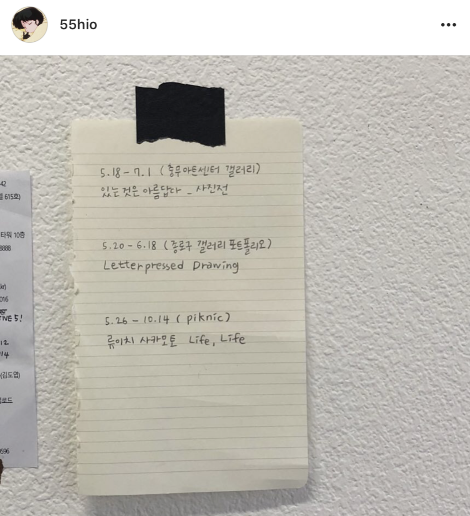 55hio
5.18 - 7.1 (충무아트센터 갤러리)
있는 것은 아름답다 _ 사진전
5.20 - 6.18 (종로구 갤러리 포트폴리오)
Letterpressed Drawing
5.26 - 10.14 ( piknic)
류이치 사카모토 Life, Life
42
615호)
타워 10층
8888
016
NE 5!
(김도엽)
보드
596